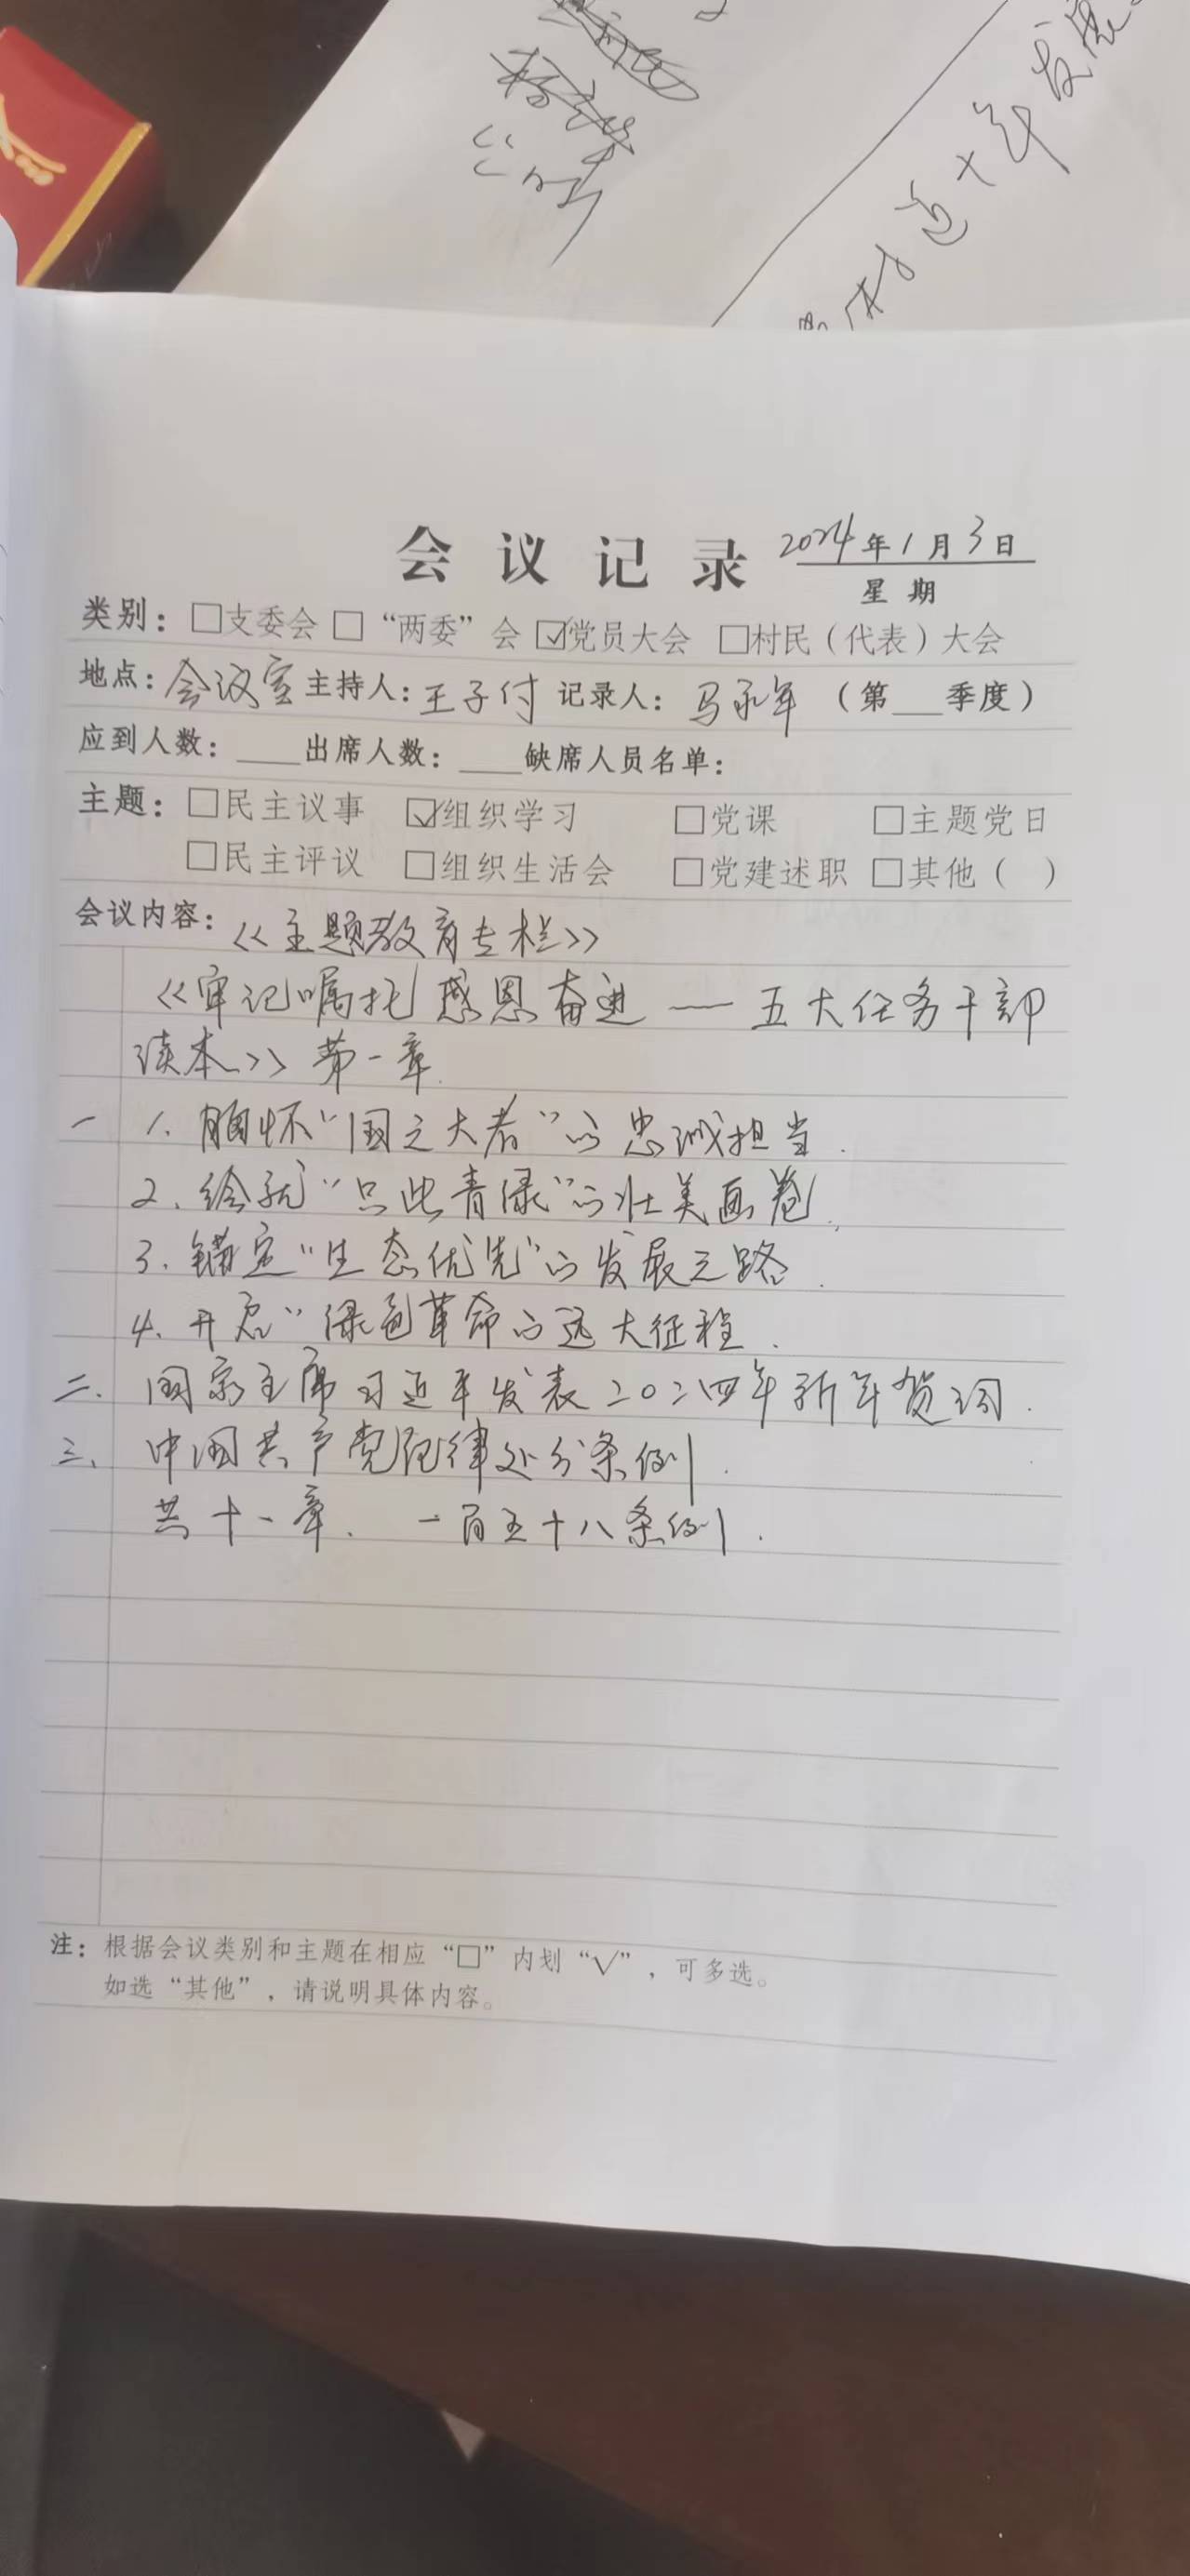 村近十年发展
会议记录 2024年1月3日
星期
类别：□支委会 □“两委”会 ☑党员大会 □村民（代表）大会
地点：会议室 主持人：王子付 记录人：马永年 （第___季度）
应到人数：____出席人数：____缺席人员名单：
主题：□民主议事 ☑组织学习 □党课 □主题党日
□民主评议 □组织生活会 □党建述职 □其他（ ）
会议内容：《主题教育专栏》
《牢记嘱托 感恩奋进 — 五大任务干部
读本》第一章.
一 1. 胸怀“国之大者”的忠诚担当.
2. 绘就“只此青绿”的壮美画卷.
3. 锚定“生态优先”的发展之路.
4. 开启“绿色革命的远大征程.
二. 国家主席习近平发表二〇二四年新年贺词.
三. 中国共产党纪律处分条例.
共十一章. 一百五十八条例.
注：根据会议类别和主题在相应“□”内划“√”，可多选。
如选“其他”，请说明具体内容。